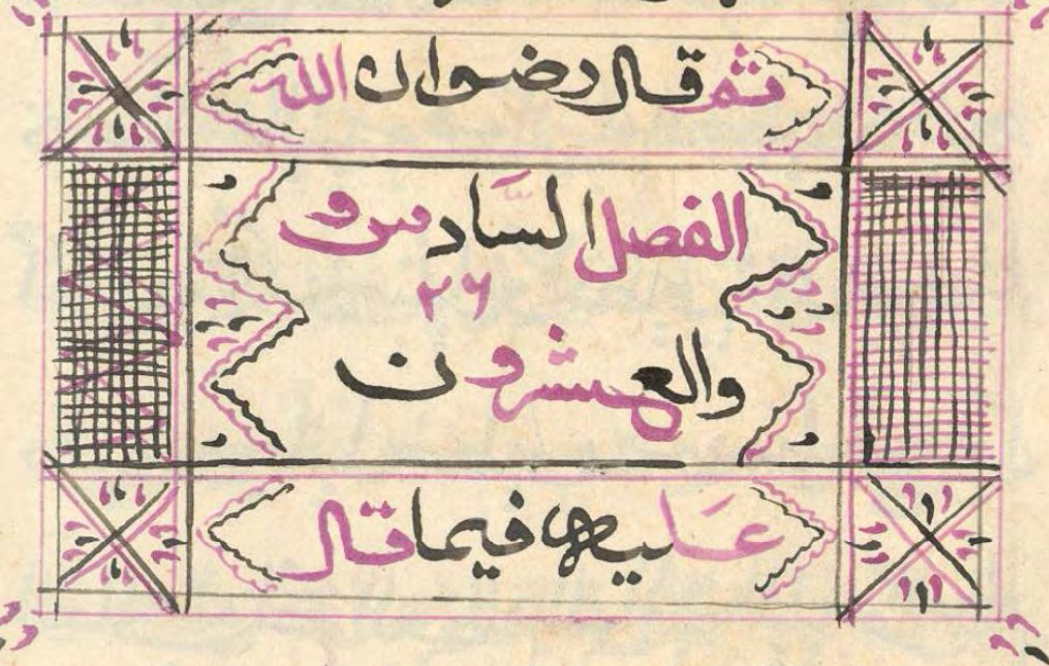 ثم قال رضوان الله
الفصل السادس و
٢٦
والعشرون
عليه فيما قال